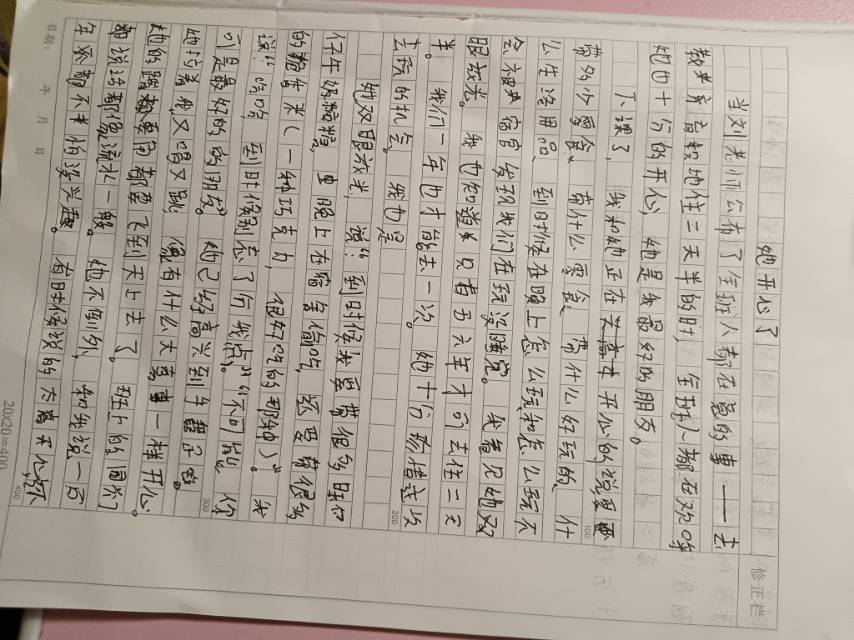 她开心了
修正栏
当刘老师公布了全班人都在意的事——去
教育基地住三天半的时,全班人都在欢呼
她也十分的开心,她是我最好的朋友。
下课了,我和她正在开心的说要
带多少零食、带什么零食、带什么好玩的、什
么生活用品、到时候在晚上怎么玩和怎么玩不
会被宿官发现我们在玩没睡觉。我看见她双
眼放光。我也知道只有五六年才可去住三天
半。我们一年也才能去一次。她十分珍惜这次
去玩的机会。我也是
她双眼放光,说:“到时候我要带很多旺仔
仔牛奶糖,在晚上在宿舍偷吃,还要带很多
的脆香米(一种巧克力,很好吃的那种)。”我
说:“哈哈,到时候别忘了分我点。”“不可能,你
可是最好的的朋友。”她已经高兴到手舞足蹈。
她拉着我又唱又跳,像有什么大喜事一样开心。
她的嘴都要飞到天上去了。班上的同学们
都说话都像流水一般。她不例外,和我说一百
年不都不怕没兴趣。有时候说的太高兴
日期: 年 月 日
20X20=400
100
200
300
400